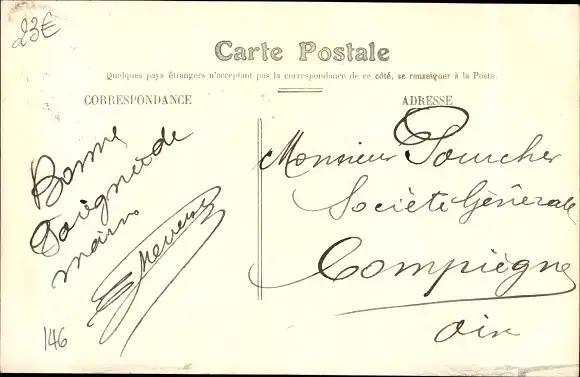 23€
Carte Postale
Quelques pays étrangers n'acceptant pas la correspondance de ce côté, se renseigner à la Poste.
CORRESPONDANCE
ADRESSE
Bonne
Poignée de
main
Monsieur Pourcher
Société Générale
Compiègne
Oise
146